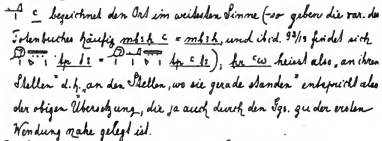 c bezeichnet den Ort im weitesten Sinne (so geben die var. des
Totenbuches häufig mḫꜣḫ c = mḫꜣḫ, und ibid. 99/13 findet sich
); ḥr cw heisst also „an ihren
Stellen" d.h. „an den Stellen, wo sie gerade standen" entspricht also
der obigen Übersetzung, die ja auch durch den Ggs. zu der ersten
Wendung nahe gelegt ist.